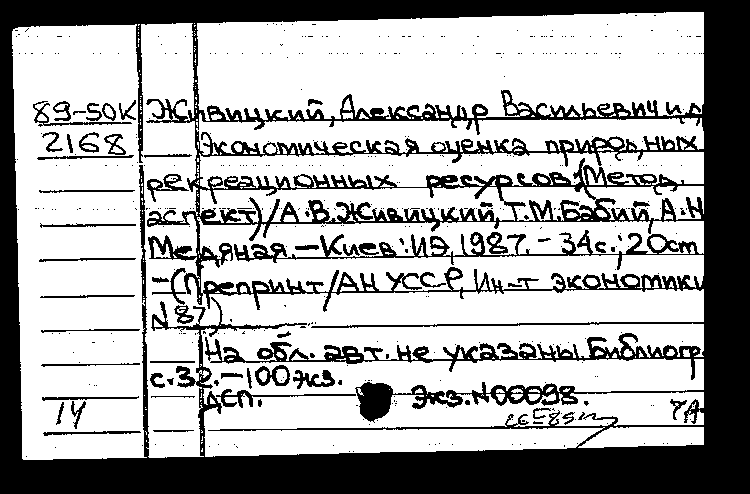 89-50К Живицкий, Александр Васильевич и др
2168 Экономическая оценка природ,ных
рекреационных ресурсов: (Метод.
аспект) / А.В. Живицкий, Т.М. Бабий, А.Н
Медяная. - Киев: ИЭ, 1987. - 34с.; 20см
- (Препринт / АН УССР, Ин-т экономики
N 87).
На обл. авт. не указаны. Библиогр.
с. 32. - 100 экз.
ДСП. Экз. N 00098.
14 7А-